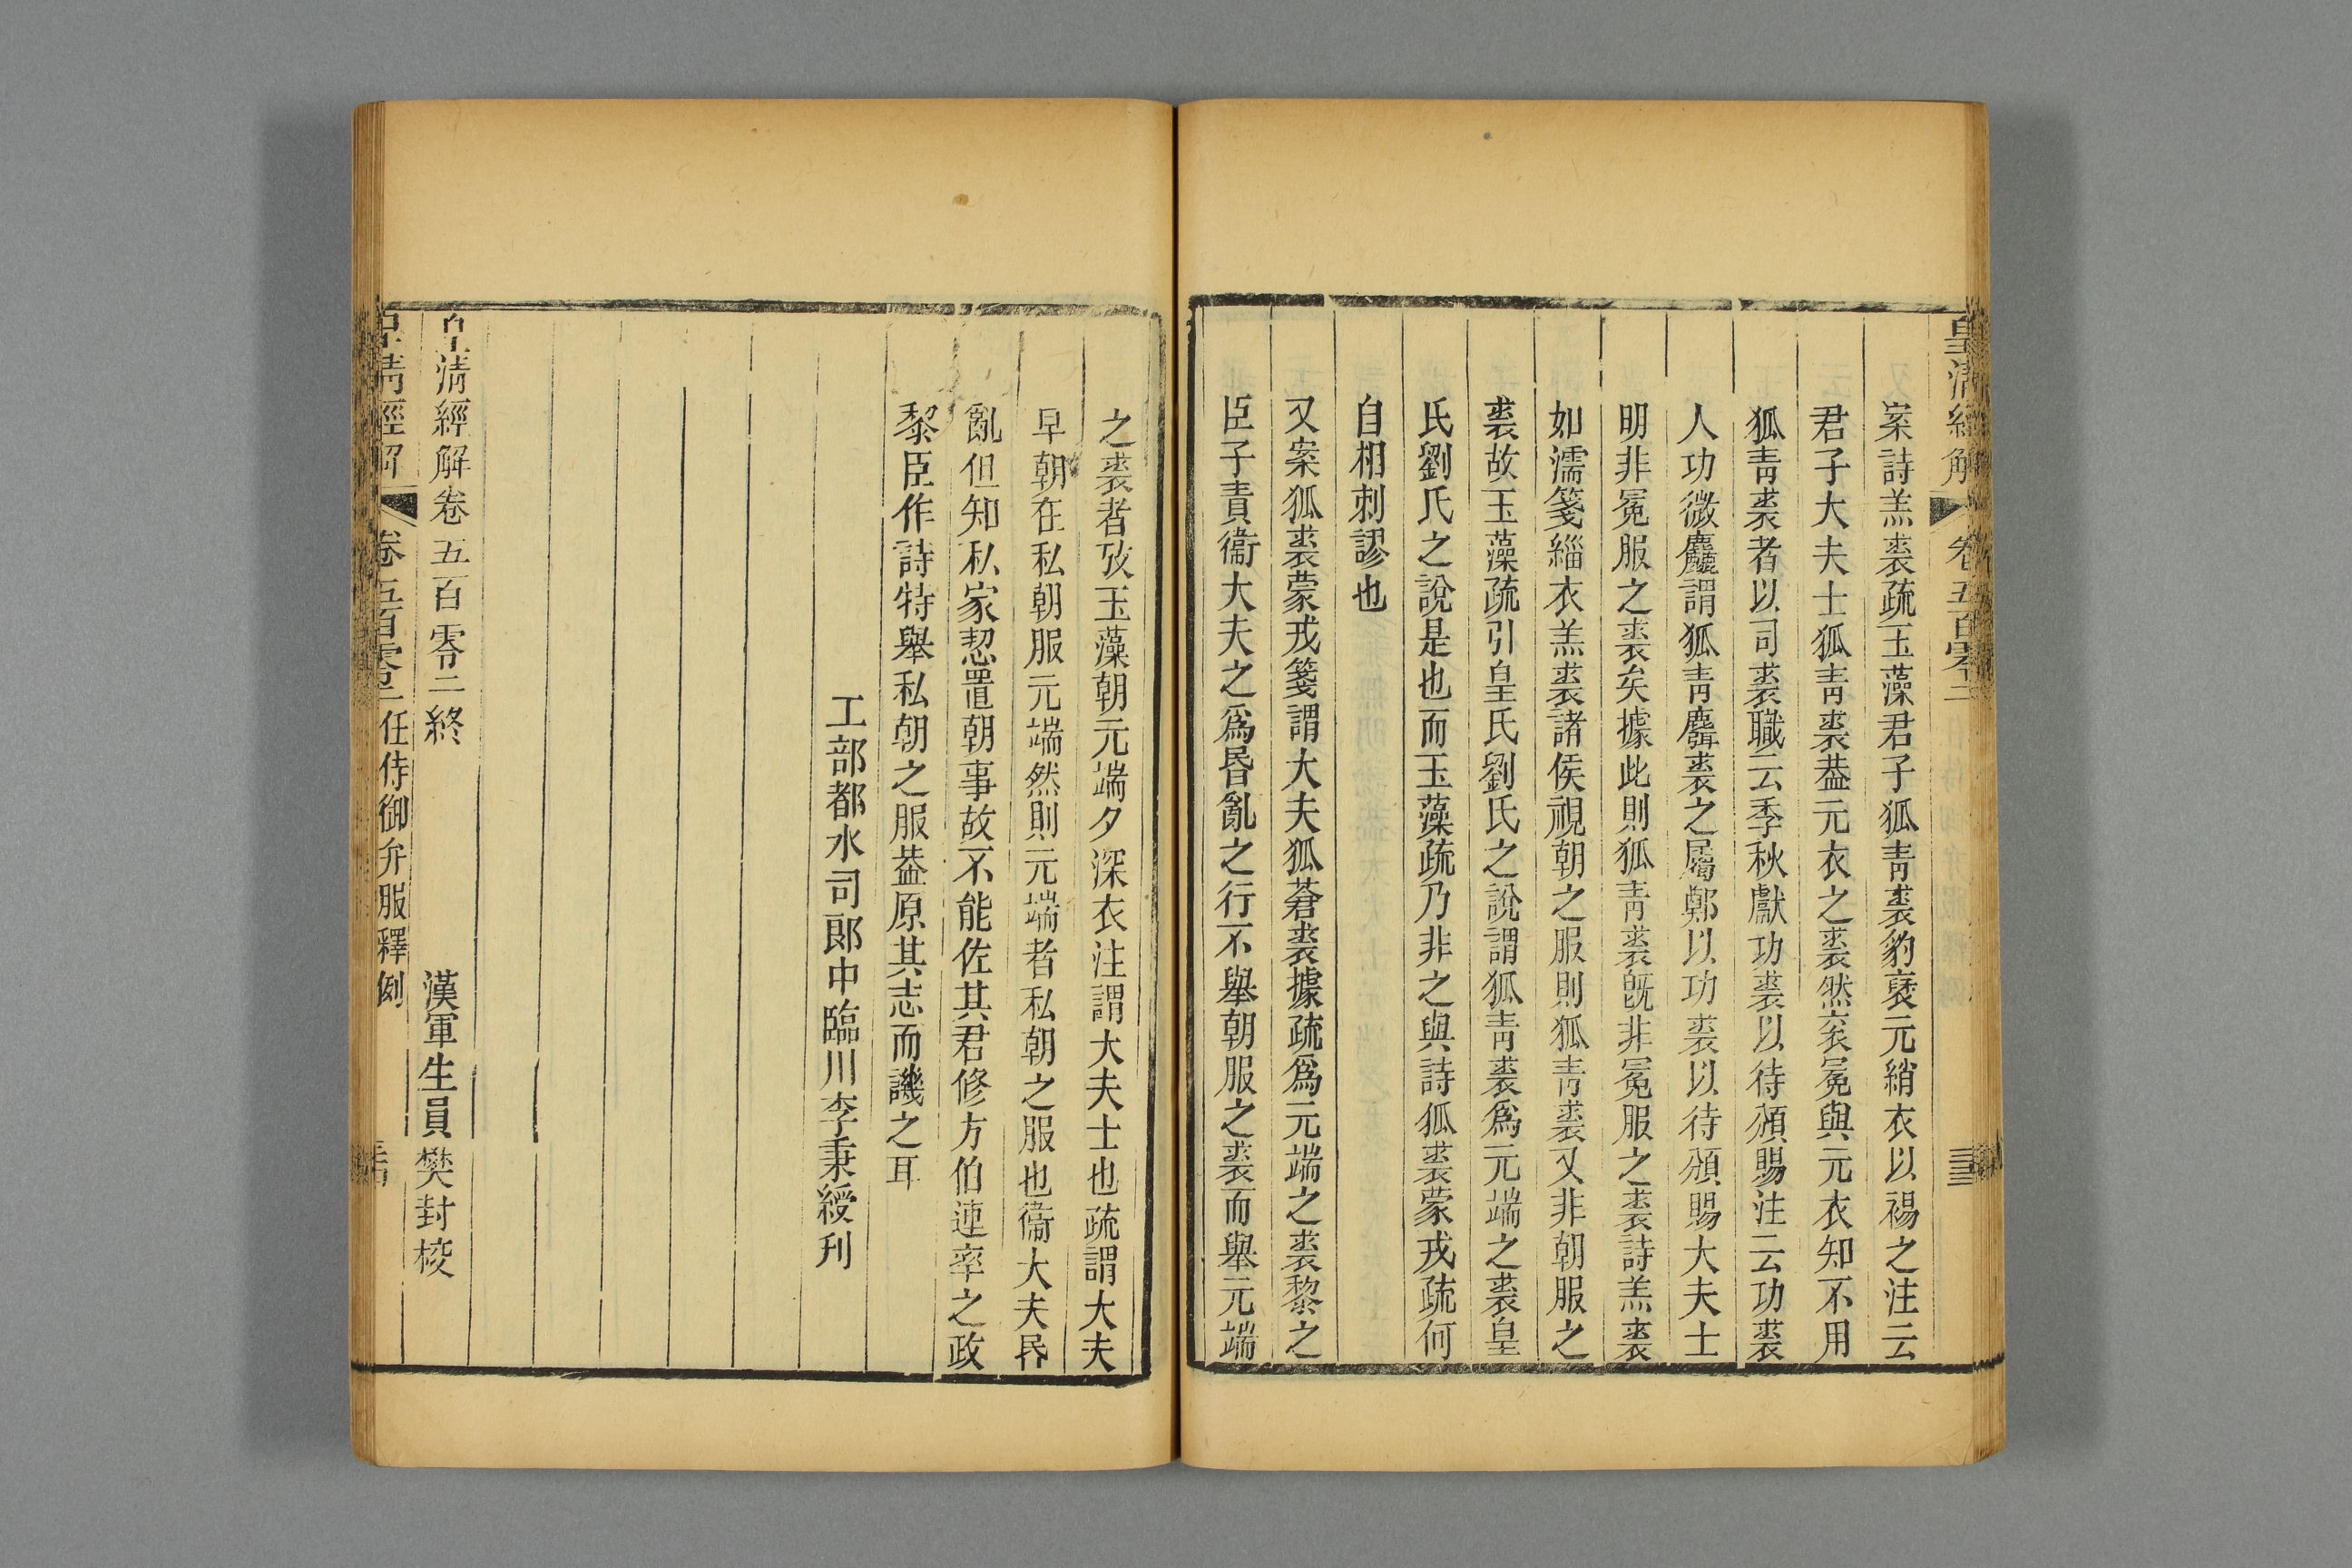 皇清經解 卷五百零二
案詩羔裘疏玉藻君子狐青裘豹褎元綃衣以裼之注云
君子大夫士狐青裘葢元衣之裘然衮冕與元衣知不用
狐青裘者以司裘職云季秋獻功裘以待頒賜注云功裘
人功微麤謂狐青麛裘之屬鄭以功裘以待頒賜大夫士
明非冕服之裘矣據此則狐青裘旣非冕服之裘詩羔裘
如濡箋緇衣羔裘諸侯視朝之服則狐青裘又非朝服之
裘故玉藻疏引皇氏劉氏之說謂狐青裘爲元端之裘皇
氏劉氏之說是也而玉藻疏乃非之與詩狐裘蒙戎疏何
自相刺謬也
又案狐裘蒙戎箋謂大夫狐蒼裘據疏爲元端之裘黎之
臣子責衞大夫之爲昬亂之行不舉朝服之裘而舉元端
之裘者攷玉藻朝元端夕深衣注謂大夫士也疏謂大夫
早朝在私朝服元端然則元端者私朝之服也衞大夫昬
亂但知私家恝置朝事故不能佐其君修方伯連率之政
黎臣作詩特舉私朝之服葢原其志而譏之耳
工部都水司郎中臨川李秉綬刊
皇清經解卷五百零二終
漢軍生員樊封校
皇清經解 卷五百零二 任侍御弁服釋例